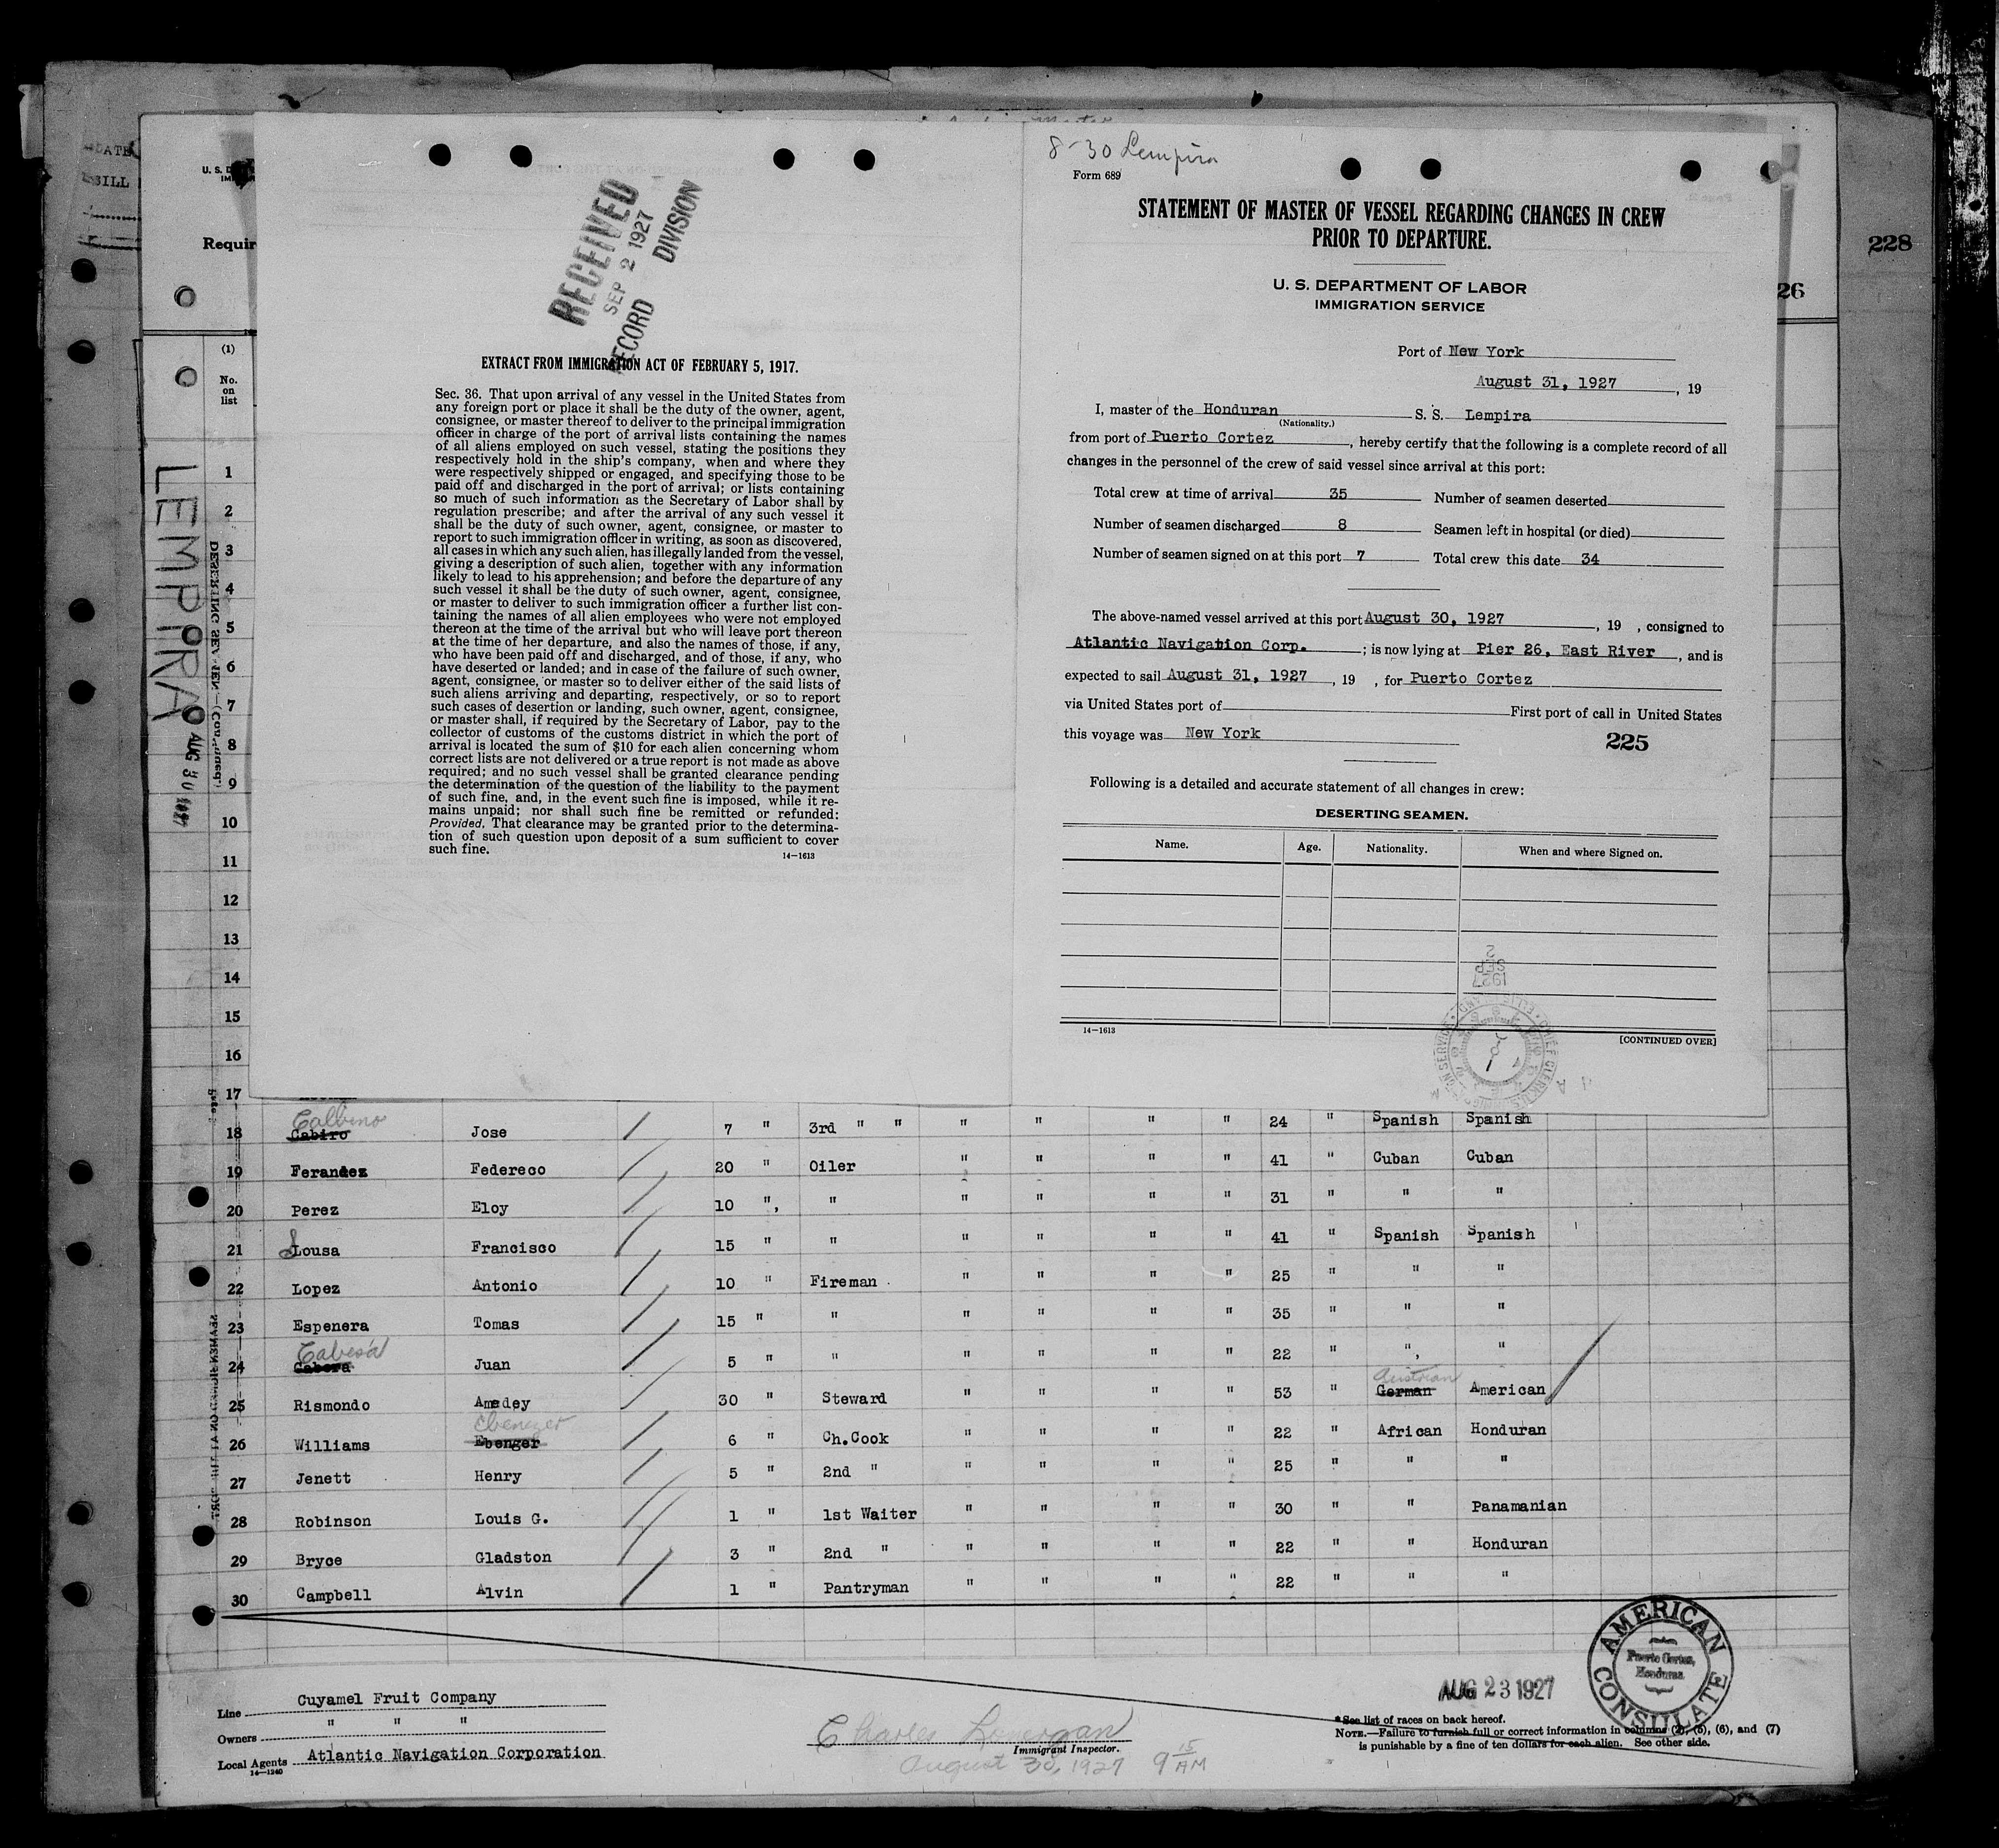 8-30 Lempira
Form 689
STATEMENT OF MASTER OF VESSEL REGARDING CHANGES IN CREW
PRIOR TO DEPARTURE.
U. S. DEPARTMENT OF LABOR
IMMIGRATION SERVICE
Port of New York
August 31, 1927, 19
I, master of the Honduran S. S. Lempira
(Nationality.)
from port of Puerto Cortez, hereby certify that the following is a complete record of all
changes in the personnel of the crew of said vessel since arrival at this port:
Total crew at time of arrival 35 Number of seamen deserted
Number of seamen discharged 8 Seamen left in hospital (or died)
Number of seamen signed on at this port 7 Total crew this date 34
The above-named vessel arrived at this port August 30, 1927, 19 , consigned to
Atlantic Navigation Corp. ; is now lying at Pier 26, East River, and is
expected to sail August 31, 1927, 19 , for Puerto Cortez
via United States port of First port of call in United States
this voyage was New York
225
Following is a detailed and accurate statement of all changes in crew:
DESERTING SEAMEN.
Name. Age. Nationality. When and where Signed on.
14—1613
[CONTINUED OVER]
RECEIVED
SEP 2 1927
RECORD DIVISION
EXTRACT FROM IMMIGRATION ACT OF FEBRUARY 5, 1917.
Sec. 36. That upon arrival of any vessel in the United States from
any foreign port or place it shall be the duty of the owner, agent,
consignee, or master thereof to deliver to the principal immigration
officer in charge of the port of arrival lists containing the names
of all aliens employed on such vessel, stating the positions they
respectively hold in the ship's company, when and where they
were respectively shipped or engaged, and specifying those to be
paid off and discharged in the port of arrival; or lists containing
so much of such information as the Secretary of Labor shall by
regulation prescribe; and after the arrival of any such vessel it
shall be the duty of such owner, agent, consignee, or master to
report to such immigration officer in writing, as soon as discovered,
all cases in which any such alien, has illegally landed from the vessel,
giving a description of such alien, together with any information
likely to lead to his apprehension; and before the departure of any
such vessel it shall be the duty of such owner, agent, consignee,
or master to deliver to such immigration officer a further list con-
taining the names of all alien employees who were not employed
thereon at the time of the arrival but who will leave port thereon
at the time of her departure, and also the names of those, if any,
who have been paid off and discharged, and of those, if any, who
have deserted or landed; and in case of the failure of such owner,
agent, consignee, or master so to deliver either of the said lists of
such aliens arriving and departing, respectively, or so to report
such cases of desertion or landing, such owner, agent, consignee,
or master shall, if required by the Secretary of Labor, pay to the
collector of customs of the customs district in which the port of
arrival is located the sum of $10 for each alien concerning whom
correct lists are not delivered or a true report is not made as above
required; and no such vessel shall be granted clearance pending
the determination of the question of the liability to the payment
of such fine, and, in the event such fine is imposed, while it re-
mains unpaid; nor shall such fine be remitted or refunded:
Provided, That clearance may be granted prior to the determina-
tion of such question upon deposit of a sum sufficient to cover
such fine.
14—1613
228
26
DATE
BILL
U. S. D
IM
Requir
(1)
No.
on
list
LEMPIRA
AUG 30 1927
1
2
3
4
5
6
7
8
9
10
11
12
13
14
15
16
17
Calbino
18 Cabiro Jose 7 " 3rd " " " " " " 24 " Spanish Spanish
19 Ferandez Federeco 20 " Oiler " " " " 41 " Cuban Cuban
20 Perez Eloy 10 " " " " " " 31 " " "
21 Sousa Francisco 15 " " " " " " 41 " Spanish Spanish
22 Lopez Antonio 10 " Fireman " " " " 25 " " "
23 Espenera Tomas 15 " " " " " " 35 " " "
Cabesa
24 Cabera Juan 5 " " " " " " 22 " " "
Austrian
25 Rismondo Amedey 30 " Steward " " " " 53 " German American
Ebenezer
26 Williams Ebenger 6 " Ch.Cook " " " " 22 " African Honduran
27 Jenett Henry 5 " 2nd " " " " " 25 " " "
28 Robinson Louis G. 1 " 1st Waiter " " " " 30 " " Panamanian
29 Bryce Gladston 3 " 2nd " " " " " 22 " " Honduran
30 Campbell Alvin 1 " Pantryman " " " " 22 " " "
Line Cuyamel Fruit Company
Owners " " "
Local Agents Atlantic Navigation Corporation
14—1240
Charles Lonergan
Immigrant Inspector.
August 30, 1927 9 15 AM
AUG 23 1927
AMERICAN CONSULATE
Puerto Cortes,
Honduras
*See list of races on back hereof.
NOTE.—Failure to furnish full or correct information in columns (2), (5), (6), and (7)
is punishable by a fine of ten dollars for each alien. See other side.